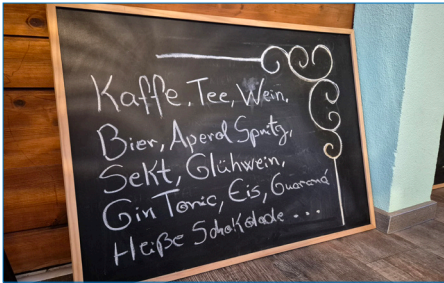 Kaffe, Tee, Wein,
Bier, Aperol Spritz,
Sekt, Glühwein,
Gin Tonic, Eis, Guaraná
Heiße Schokolade...